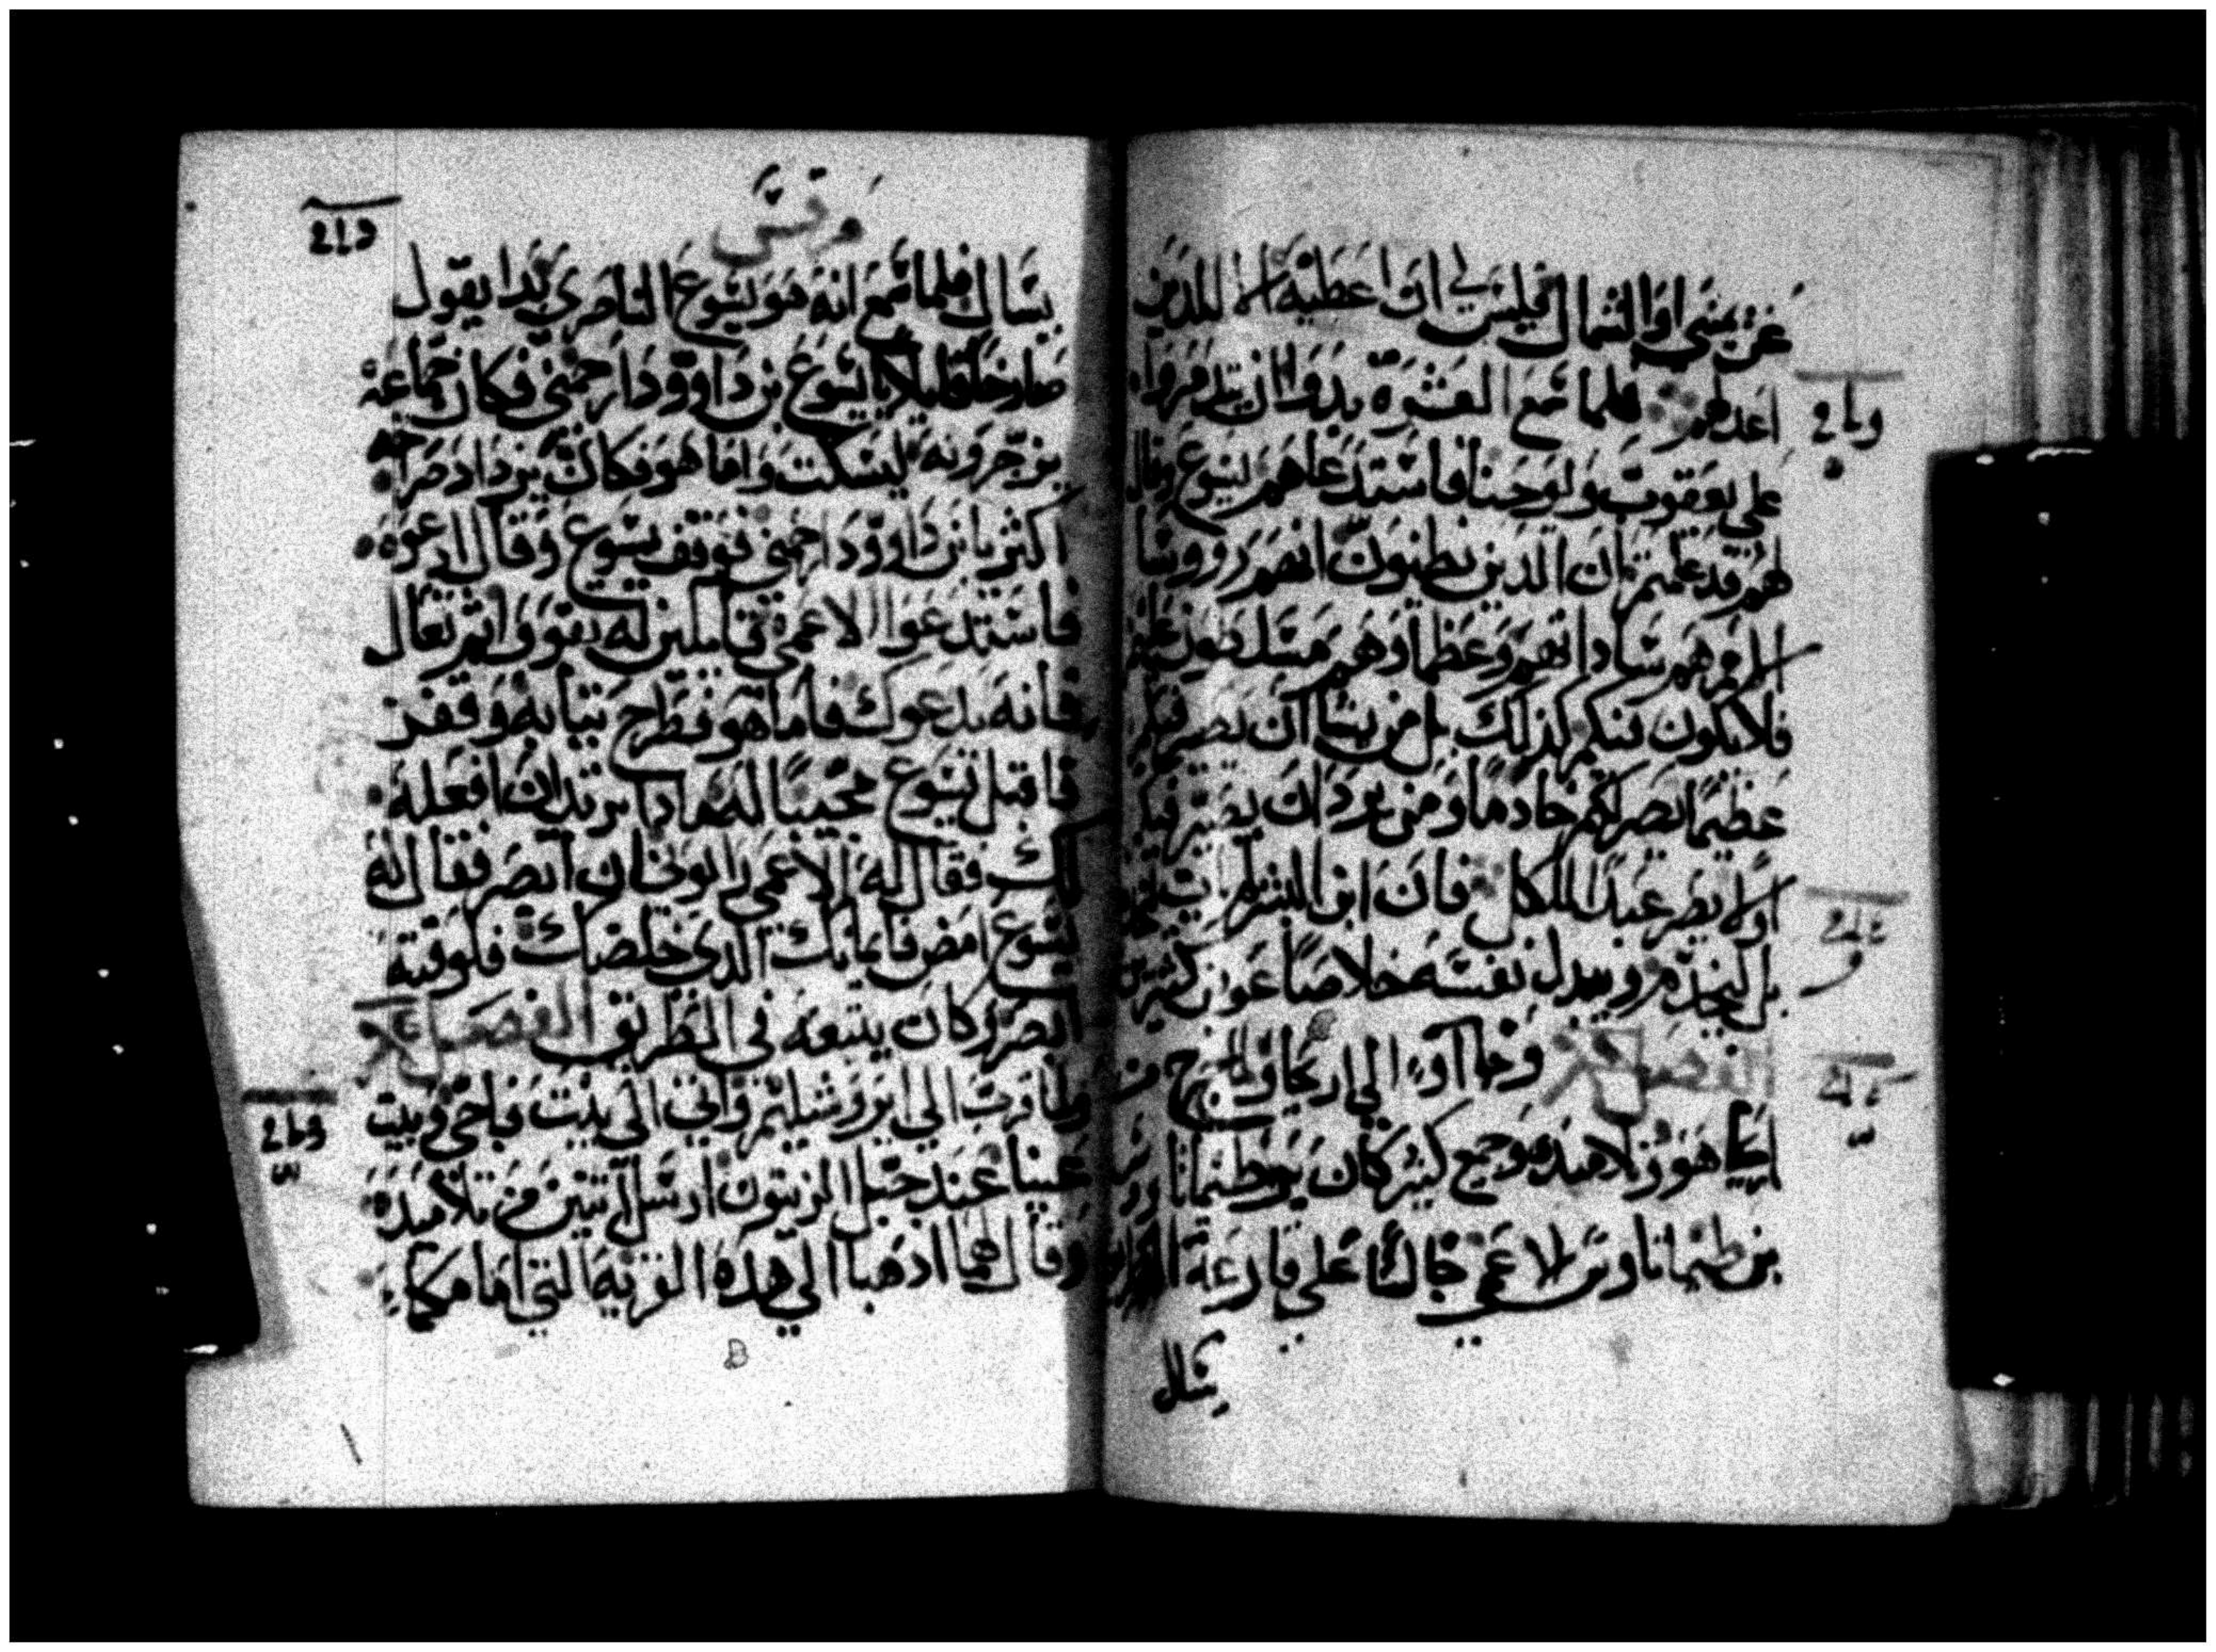 عن يميني او الشمال فليس لي ان اعطيه الا للذين
اعد لهم فلما سمع العشرة بدوا ان يتدمروا
علي يعقوب ويوحنا فاستدعاهم ايسوع وقال
لهم قد علمتم ان الذين يظنون انهم رووسا
الامم هم ساداتهم وعظماوهم متسلطون عليهم
فلا يكون فيكم كذلك بل من يشا ان يصير فيكم
عظيما يصر لكم خادما ومن يود ان يصير فيكم
اولا يصر عبدا للكل فان ابن البشر لم يات ليخدم
بل ليخدم ويبدل نفسه خلاصا عون كثيرين
الفصل وجاآوا الي اريحا ولما خرج من
اريحا هو وتلاميذه وجمع كثير كان برطيماتا
بن طيماتا وتن الاعمي جالسا علي قارعة الطريق
يسال
مرقس
يسال فلما سمع انه هو يسوع الناصري بدا يقول
صارخا قايلا يا يسوع بن داوود ارحمني فكان جماعة
يزجرونه ليسكت واما هو فكان يزداد صراخه
اكثر يا بن داوود ارحمني فوقف يسوع وقال ادعوه
فاستدعوا الاعمي قايلين له تقوى وا تم تعال
فانه يدعوك فاما هو فطرح ثيابه وقفز
فاقبل يسوع مجيبا له ماذا تريد ان افعله
لك فقال له الاعمي رابوني ان ابصر فقال له
يسوع امض فايمانك الذي خلصك فلوقته
ابصر وكان يتبعه في الطريق الفصل
ولما قرب الي ايروشليم واتي الي بيت فاجي وبيت
عنيا عند جبل الزيتون ارسل اثنين من تلاميذه
وقال لهما اذهبا الي هذه القرية التي امامكما